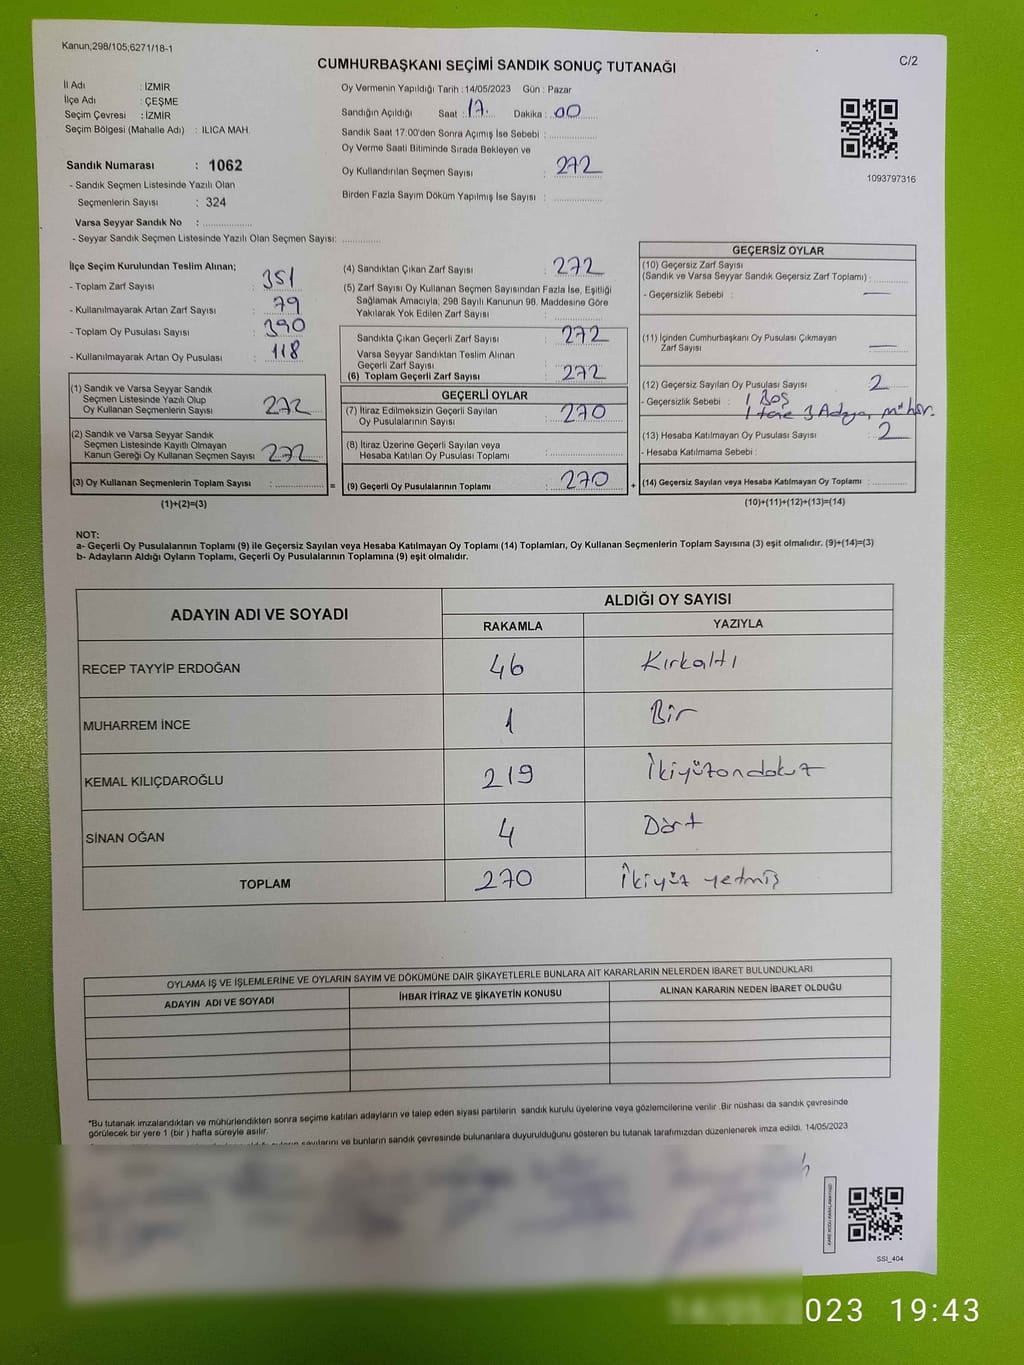 Kanun;298/105;6271/18-1
C/2
CUMHURBAŞKANI SEÇİMİ SANDIK SONUÇ TUTANAĞI
İl Adı : İZMİR
İlçe Adı : ÇEŞME
Seçim Çevresi : İZMİR
Seçim Bölgesi (Mahalle Adı) : ILICA MAH.
Sandık Numarası : 1062
- Sandık Seçmen Listesinde Yazılı Olan
Seçmenlerin Sayısı : 324
Varsa Seyyar Sandık No : ....................
- Seyyar Sandık Seçmen Listesinde Yazılı Olan Seçmen Sayısı: ..............
Oy Vermenin Yapıldığı Tarih : 14/05/2023 Gün : Pazar
Sandığın Açıldığı Saat : 17. Dakika : 00
Sandık Saat 17:00'den Sonra Açımış İse Sebebi : ..................
Oy Verme Saati Bitiminde Sırada Bekleyen ve
Oy Kullandırılan Seçmen Sayısı : 272
Birden Fazla Sayım Döküm Yapılmış İse Sayısı : ..................
1093797316
İlçe Seçim Kurulundan Teslim Alınan;
- Toplam Zarf Sayısı : 351
- Kullanılmayarak Artan Zarf Sayısı : 79
- Toplam Oy Pusulası Sayısı : 390
- Kullanılmayarak Artan Oy Pusulası : 118
(1) Sandık ve Varsa Seyyar Sandık
Seçmen Listesinde Yazılı Olup
Oy Kullanan Seçmenlerin Sayısı 272
(2) Sandık ve Varsa Seyyar Sandık
Seçmen Listesinde Kayıtlı Olmayan
Kanun Gereği Oy Kullanan Seçmen Sayısı 272
(3) Oy Kullanan Seçmenlerin Toplam Sayısı : .............. =
(1)+(2)=(3)
(4) Sandıktan Çıkan Zarf Sayısı : 272
(5) Zarf Sayısı Oy Kullanan Seçmen Sayısından Fazla İse, Eşitliği
Sağlamak Amacıyla, 298 Sayılı Kanunun 98. Maddesine Göre
Yakılarak Yok Edilen Zarf Sayısı : ..................
Sandıkta Çıkan Geçerli Zarf Sayısı : 272
Varsa Seyyar Sandıktan Teslim Alınan
Geçerli Zarf Sayısı
(6) Toplam Geçerli Zarf Sayısı : 272
GEÇERLİ OYLAR
(7) İtiraz Edilmeksizin Geçerli Sayılan
Oy Pusulasının Sayısı : 270
(8) İtiraz Üzerine Geçerli Sayılan veya
Hesaba Katılan Oy Pusulası Toplamı : ..................
(9) Geçerli Oy Pusulalarının Toplamı : 270 +
GEÇERSİZ OYLAR
(10) Geçersiz Zarf Sayısı
(Sandık ve Varsa Seyyar Sandık Geçersiz Zarf Toplamı) : ............
- Geçersizlik Sebebi : —
(11) İçinden Cumhurbaşkanı Oy Pusulası Çıkmayan
Zarf Sayısı : —
(12) Geçersiz Sayılan Oy Pusulası Sayısı : 2
- Geçersizlik Sebebi : 1 Boş
1 tane 3 Adaya mühür.
(13) Hesaba Katılmayan Oy Pusulası Sayısı : 2
- Hesaba Katılmama Sebebi :
(14) Geçersiz Sayılan veya Hesaba Katılmayan Oy Toplamı : ............
(10)+(11)+(12)+(13)=(14)
NOT:
a- Geçerli Oy Pusulalarının Toplamı (9) ile Geçersiz Sayılan veya Hesaba Katılmayan Oy Toplamı (14) Toplamları, Oy Kullanan Seçmenlerin Toplam Sayısına (3) eşit olmalıdır. (9)+(14)=(3)
b- Adayların Aldığı Oyların Toplamı, Geçerli Oy Pusulalarının Toplamına (9) eşit olmalıdır.
ADAYIN ADI VE SOYADI
ALDIĞI OY SAYISI
RAKAMLA YAZIYLA
RECEP TAYYİP ERDOĞAN 46 Kırkaltı
MUHARREM İNCE 1 Bir
KEMAL KILIÇDAROĞLU 219 İkiyüzondokuz
SİNAN OĞAN 4 Dört
TOPLAM 270 İkiyüz yetmiş
OYLAMA İŞ VE İŞLEMLERİNE VE OYLARIN SAYIM VE DÖKÜMÜNE DAİR ŞİKAYETLERLE BUNLARA AİT KARARLARIN NELERDEN İBARET BULUNDUKLARI
ADAYIN ADI VE SOYADI İHBAR İTİRAZ VE ŞİKAYETİN KONUSU ALINAN KARARIN NEDEN İBARET OLDUĞU
*Bu tutanak imzalandıktan ve mühürlendikten sonra seçime katılan adayların ve talep eden siyasi partilerin sandık kurulu üyelerine veya gözlemcilerine verilir .Bir nüshası da sandık çevresinde
görülecek bir yere 1 (bir ) hafta süreyle asılır.
sayılarını ve bunların sandık çevresinde bulunanlara duyurulduğunu gösteren bu tutanak tarafımızdan düzenlenerek imza edildi. 14/05/2023
SSİ_404
023 19:43